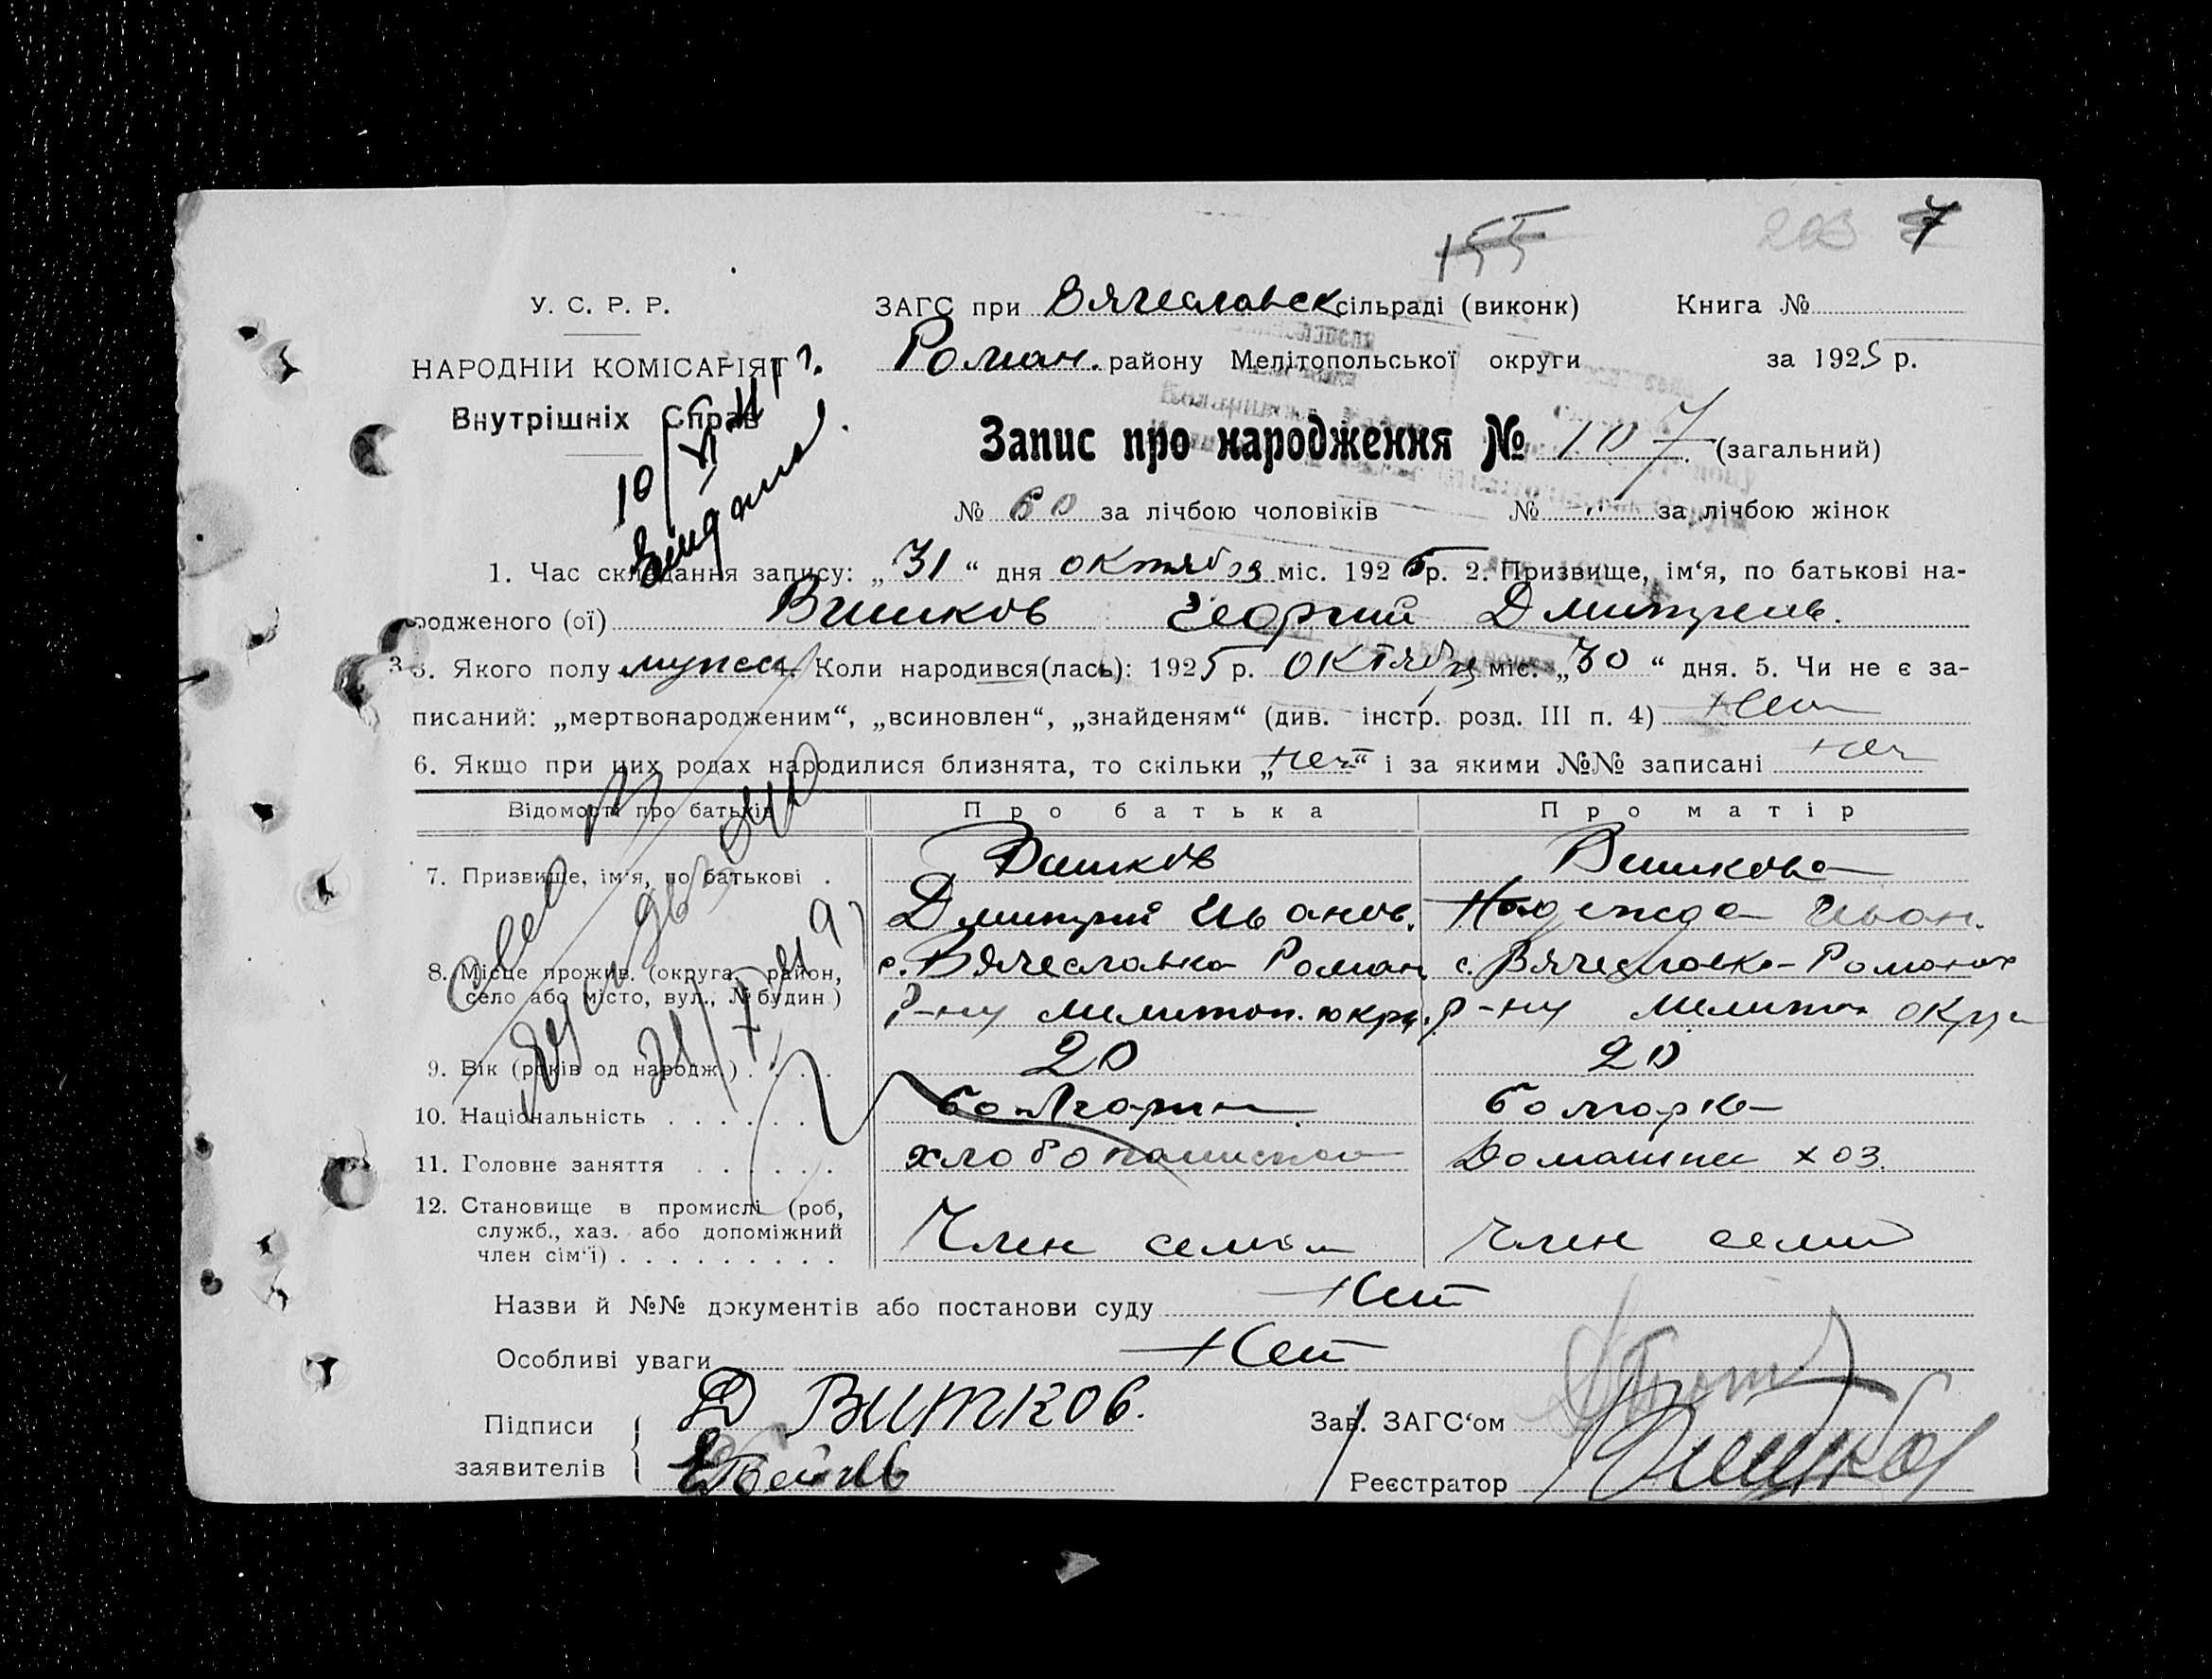 155
203 7
У. С. Р. Р.
ЗАГС при Вячеславск сільраді (виконк) Книга №
НАРОДНІЙ КОМІСАРІЯТ
Роман. району Мелітопольської округи за 1925 р.
Внутрішніх Справ
Запис про народження № 107 (загальний)
№ 60 за лічбою чоловіків № " за лічбою жінок
1. Час складання запису: „31“ дня октября міс. 1925 р. 2. Призвище, ім‘я, по батькові на-
родженого (ої) Витков Георгий Дмитриев.
3. Якого полу мужск 4. Коли народився(лась): 1925 р. Октября міс. „30“ дня. 5. Чи не є за-
писаний: „мертвонародженим“, „всиновлен“, „знайденям“ (див. інстр. розд. III п. 4) Нет
6. Якщо при цих родах народилися близнята, то скільки „Нет“ і за якими №№ записані Нет
Відомості про батьків Про батька Про матір
7. Призвище, ім‘я, по батькові . Витков Виткова
Дмитрий Иванов. Надежда Иван.
8. Місце прожив. (округа, район, с. Вячеславка Роман с. Вячеславка Роман
село або місто, вул., № будин) р-ну Мелитоп. округ. р-ну Мелитоп округ
9. Вік (років од народж.) . . . . 20 20
10. Національність . . . . . . Болгарин Болгарка
11. Головне заняття . . . . . . хлебопашество Домашнее хоз.
12. Становище в промислі (роб,
служб., хаз. або допоміжний Член семьи Член семьи
член сім‘ї) . . . . . . . . .
Назви й №№ документів або постанови суду Нет
Особливі уваги Нет
Підписи Д Витков.
заявителів
Зав. ЗАГС‘ом
Реєстратор